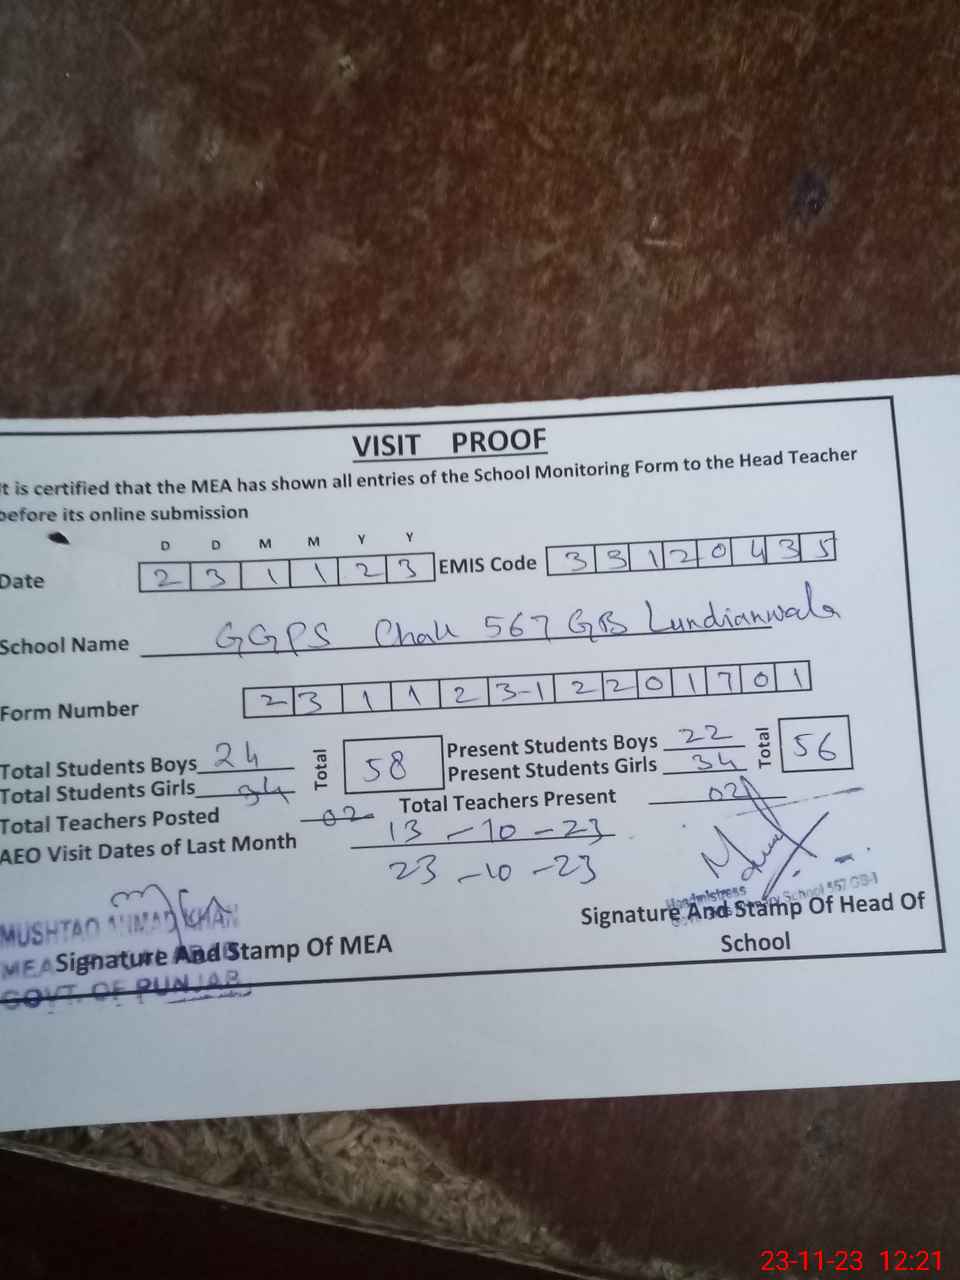 VISIT PROOF
It is certified that the MEA has shown all entries of the School Monitoring Form to the Head Teacher
before its online submission
D D M M Y Y
Date 2 3 1 1 2 3 EMIS Code 3 3 1 2 0 4 3 5
School Name GGPS Chak 567 GB Lundianwala
Form Number 2 3 1 1 2 3-1 2 2 0 1 7 0 1
Total Students Boys 24 Total 58 Present Students Boys 22 Total 56
Total Students Girls 34 Present Students Girls 34
Total Teachers Posted 02 Total Teachers Present 02
AEO Visit Dates of Last Month 13-10-23
23-10-23
MUSHTAQ AHMAD KHAN
MEA
GOVT. OF PUNJAB
Signature And Stamp Of MEA
Headmistress
School 567 GB
Signature And Stamp Of Head Of
School
23-11-23 12:21